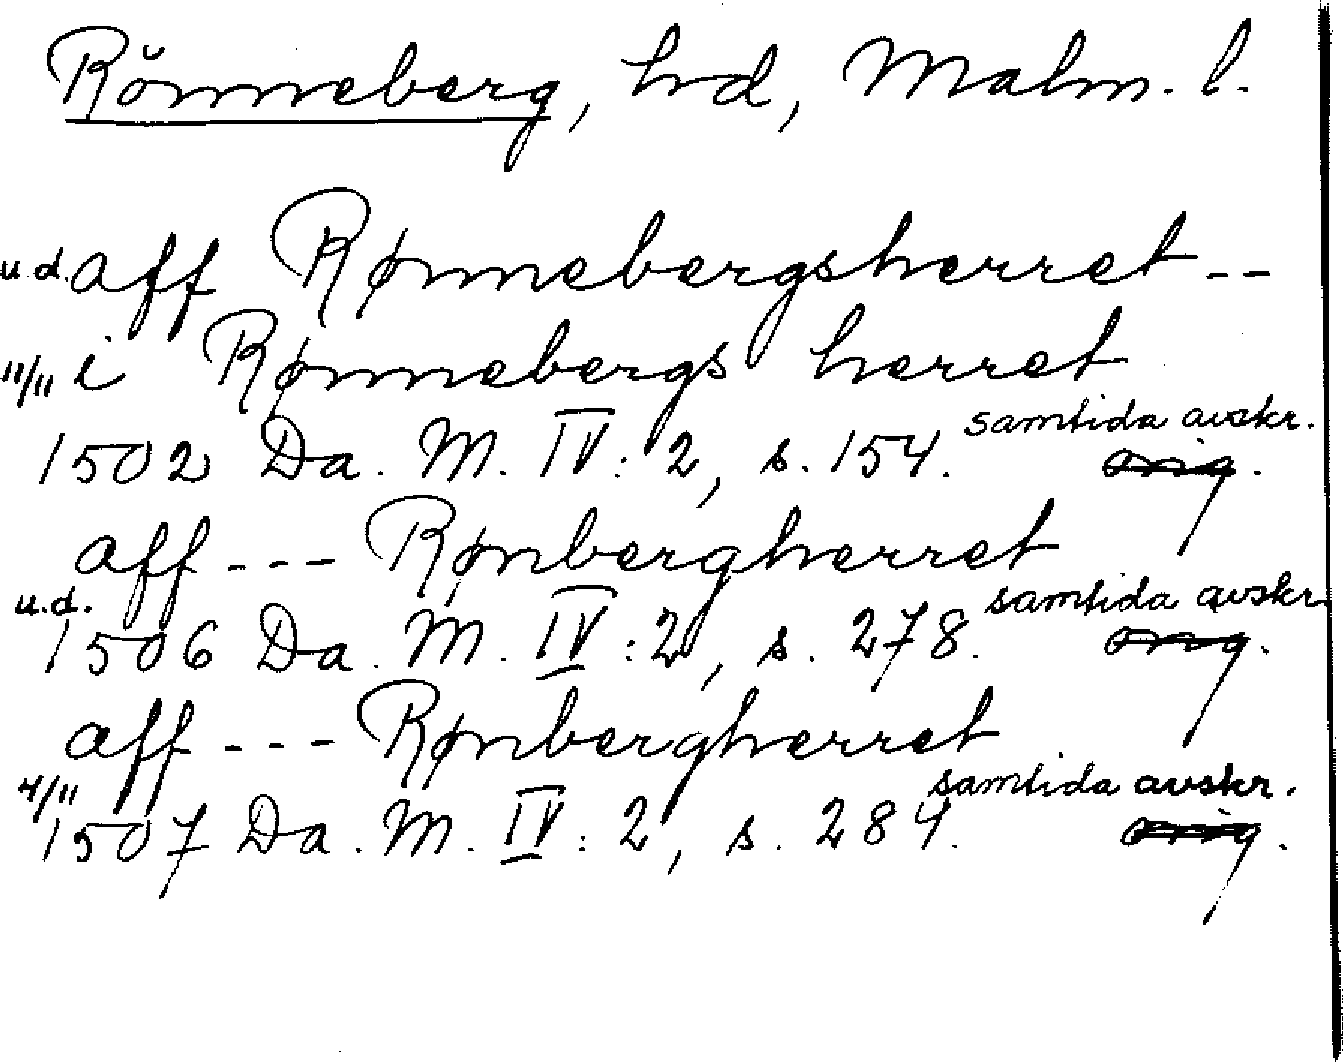 Rönneberg, hd, Malm. l.
u.d. aff Rønnebergsherret --
11/11 i Rønnebergs herret
samtida avskr.
1502 Da. M. IV: 2, s. 154. orig.
aff --- Rønbergherret
u.d. samtida avskr.
1506 Da. M. IV: 2, s. 278. orig.
aff --- Rønbergherret
4/11 samtida avskr.
1507 Da. M. IV: 2, s. 289. orig.